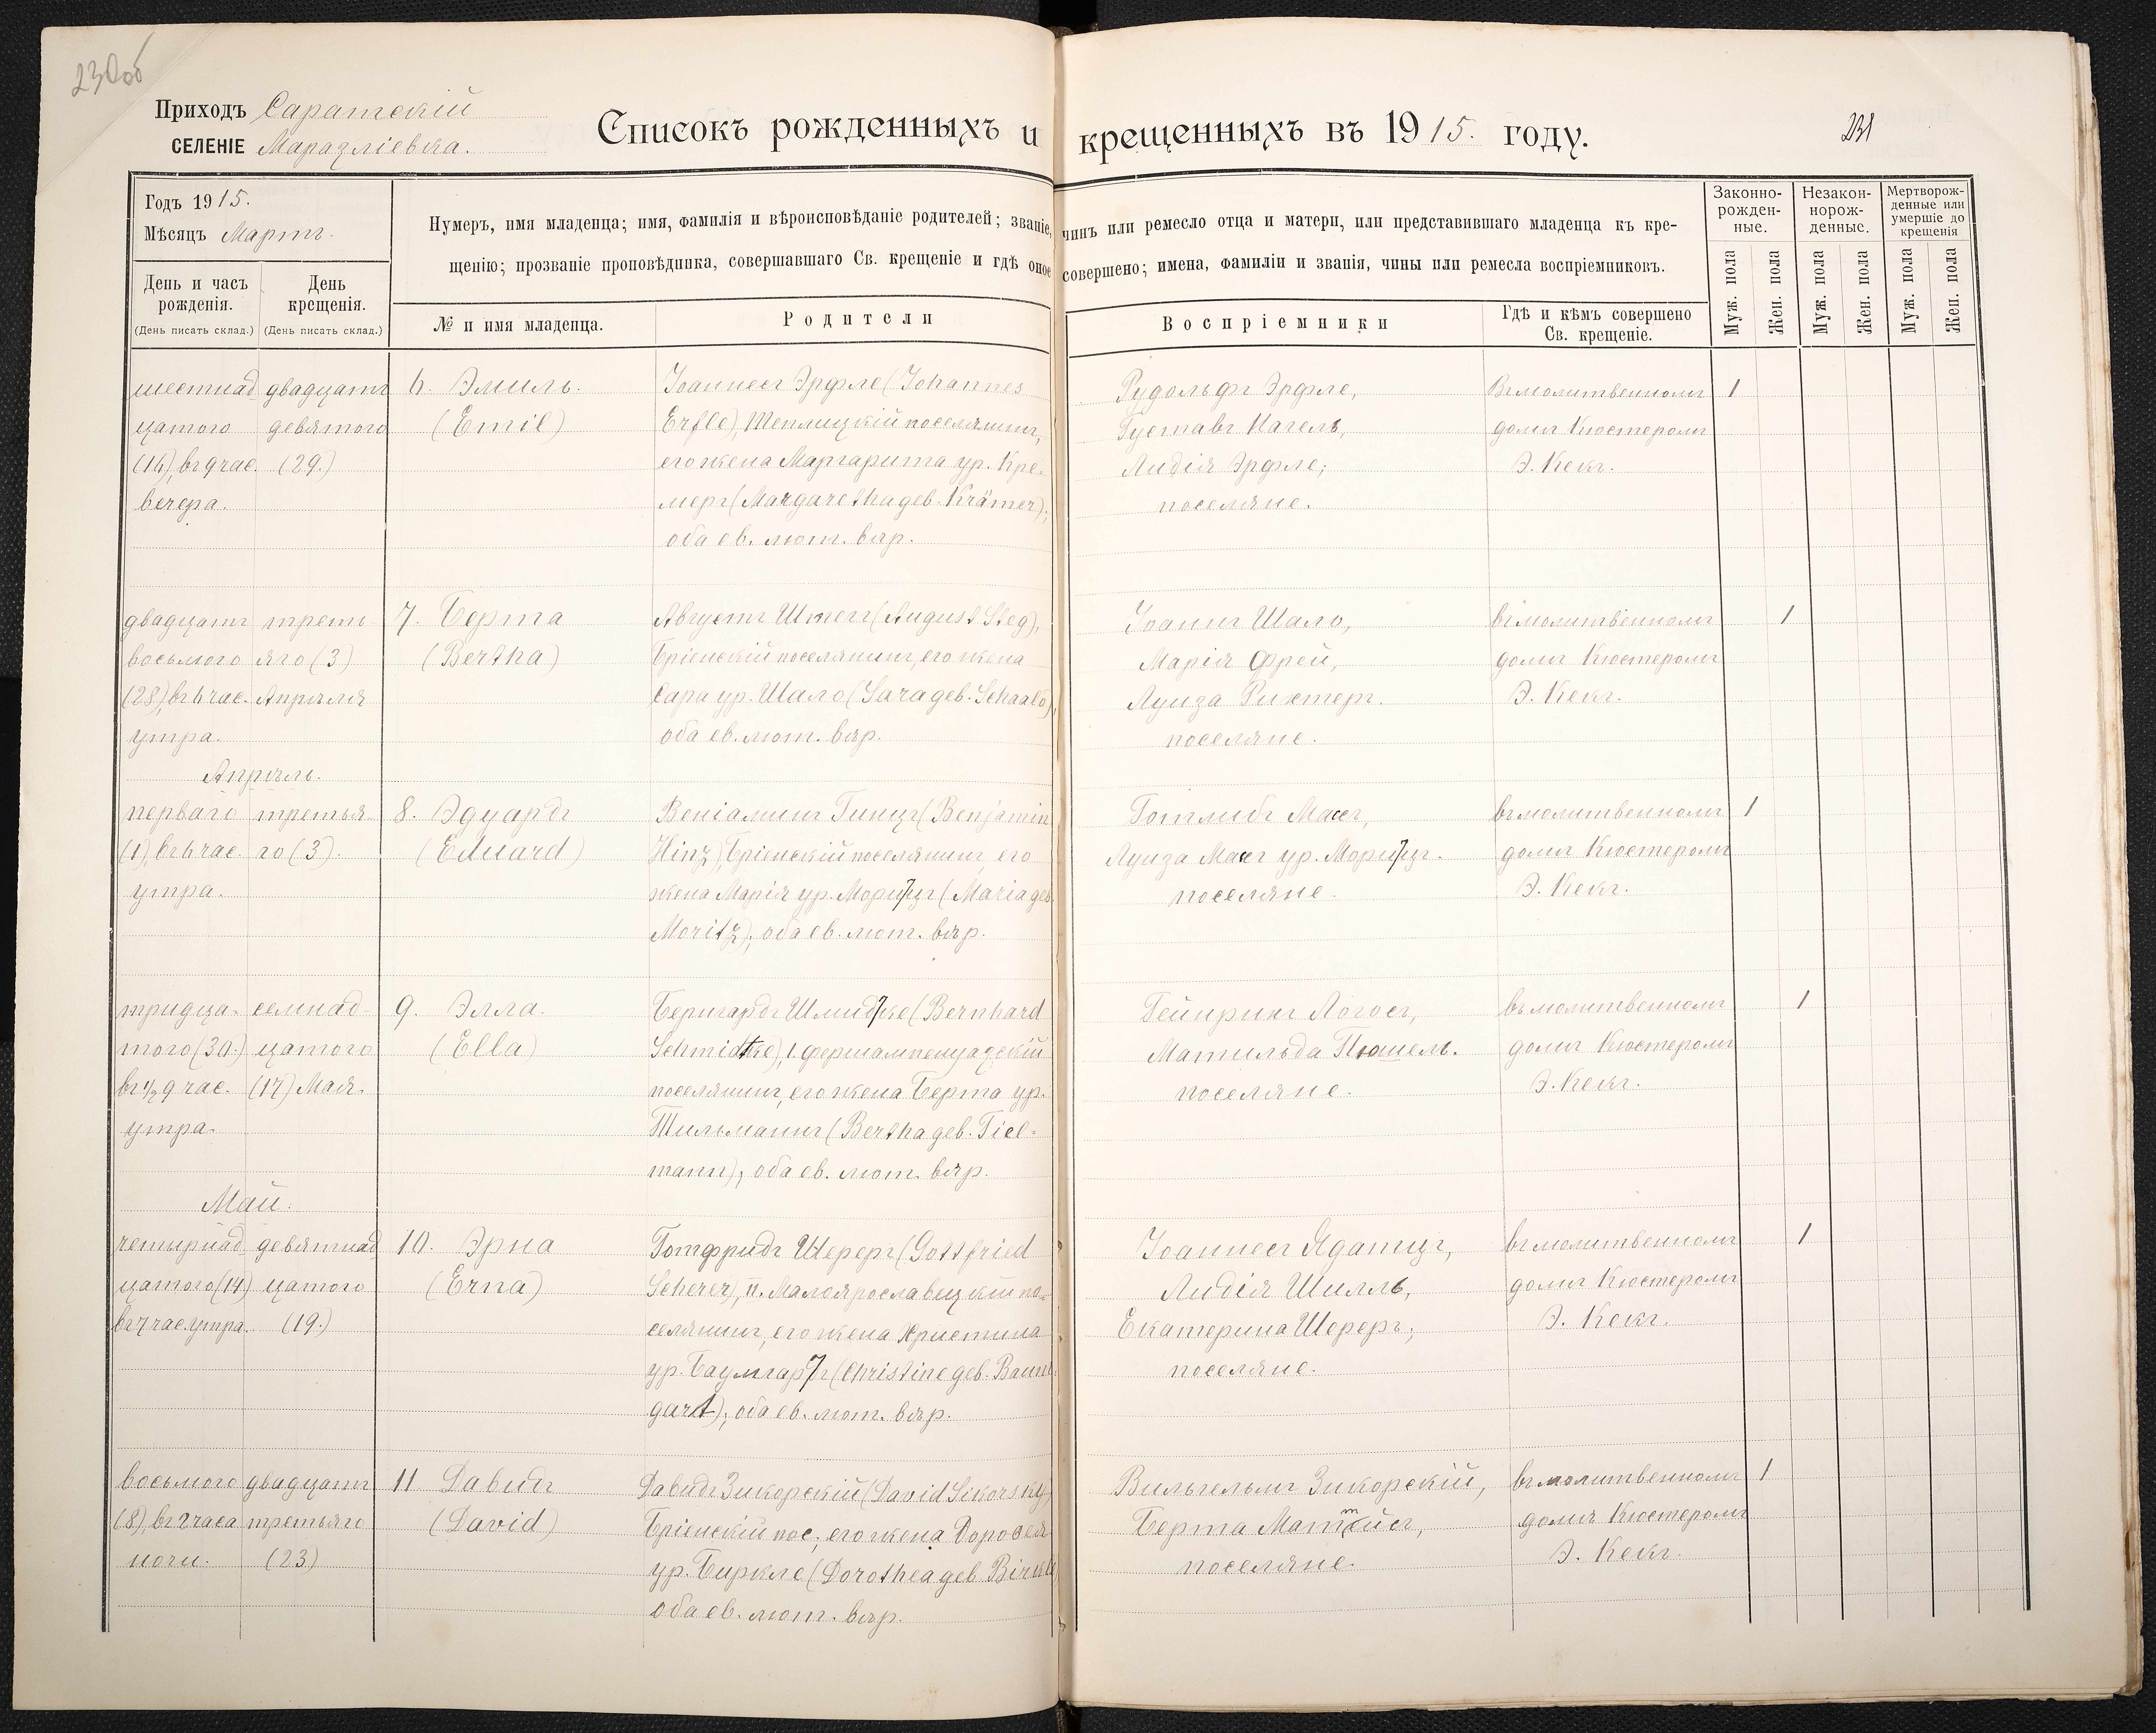 230об
Приходъ Саратскій
СЕЛЕНІЕ Маразліевка.
Списокъ рожденныхъ и крещенныхъ въ 1915. году.
231
Годъ 1915.
Мѣсяцъ Мартъ.
Нумеръ, имя младенца; имя, фамилія и вѣроисповѣданіе родителей; званіе, чинъ или ремесло отца и матери, или представившаго младенца къ кре-
щенію; прозваніе проповѣдника, совершавшаго Св. крещеніе и гдѣ оное совершено; имена, фамиліи и званія, чины или ремесла воспріемниковъ.
Законно-
рожден-
ные.
Незакон-
норож-
денные.
Мертворож-
денные или
умершіе до
крещенія
День и часъ
рожденія.
(День писать склад.)
День
крещенія.
(День писать склад.)
№ и имя младенца.
Родители
Воспріемники
Гдѣ и кѣмъ совершено
Св. крещеніе.
Муж. пола
Жен. пола
Муж. пола
Жен. пола
Муж. пола
Жен. пола
шестнад
цатого
(16), въ 9 час.
вечера.
двадцать
девятого
(29.)
6. Эмиль.
(Emil)
Іоаннесъ Эрфле (Johannes
Erfle), Теплицкій поселянинъ,
его жена Маргарита ур. Кре-
меръ (Margaretha geb. Krämer);
оба ев. лют. вѣр.
Рудольфъ Эрфле,
Густавъ Нагель,
Лидія Эрфле;
поселяне.
Въ молитвенномъ
домѣ Кюстеромъ
Э. Кекъ.
1
двадцать
восьмого
(28), въ 6 час.
утра.
треть
яго (3)
Апрѣля
7. Берта
(Bertha)
Августъ Штегъ (August Steg),
Бріенскій поселянинъ, его жена
Сара ур. Шалъ (Sara geb. Schaal),
оба ев. лют. вѣр.
Іоаннъ Шалъ,
Марія Фрей,
Луиза Рихтеръ.
поселяне.
въ молитвенномъ
домѣ Кюстеромъ
Э. Кекъ.
1
Апрѣль.
перваго
(1), въ 6 час.
утра.
третья
го (3).
8. Эдуардъ
(Eduard)
Веніаминъ Гинцъ (Benjamin
Hinz), Бріенскій поселянинъ, его
жена Марія ур. Морицъ (Maria geb.
Moritz), оба ев. лют. вѣр.
Готлибъ Массъ,
Луиза Массъ ур. Морицъ.
поселяне.
въ молитвенномъ
домѣ Кюстеромъ
Э. Кекъ.
1
тридца-
того (30.)
въ ½ 9 час.
утра.
семнад-
цатого
(17) Мая.
9. Элла.
(Ella)
Бернгардъ Шмидтке (Bernhard
Schmidtke), 1. фершампенуазскій
поселянинъ, его жена Берта ур.
Тильманнъ (Bertha geb. Tiel-
mann), оба ев. лют. вѣр.
Гейнрихъ Логосъ,
Матильда Пюшель.
поселяне.
въ молитвенномъ
домѣ Кюстеромъ
Э. Кекъ.
1
Май.
четырнад
цатого (14)
въ 7 час. утра.
девятнад
цатого
(19.)
10. Эрна
(Erna)
Готфридъ Шереръ (Gottfried
Scherer), II. Малоярославецкій по-
селянинъ, его жена Христина
ур. Баумгартъ (Christine geb. Baum-
gart), оба ев. лют. вѣр.
Іоаннесъ Ядатцъ,
Лидія Шилль,
Екатерина Шереръ;
поселяне.
въ молитвенномъ
домѣ Кюстеромъ
Э. Кекъ.
1
восьмого
(8), въ 2 часа
ночи.
двадцать
третьяго
(23)
11 Давидъ
(David)
Давидъ Зикорскій (David Sikorsky)
Бріенскій пос., его жена Доротея
ур. Биркле (Dorothea geb. Birkle)
оба ев. лют. вѣр.
Вильгельмъ Зикорскій,
Берта Маттейсъ,
поселяне.
въ молитвенномъ
домѣ Кюстеромъ
Э. Кекъ.
1